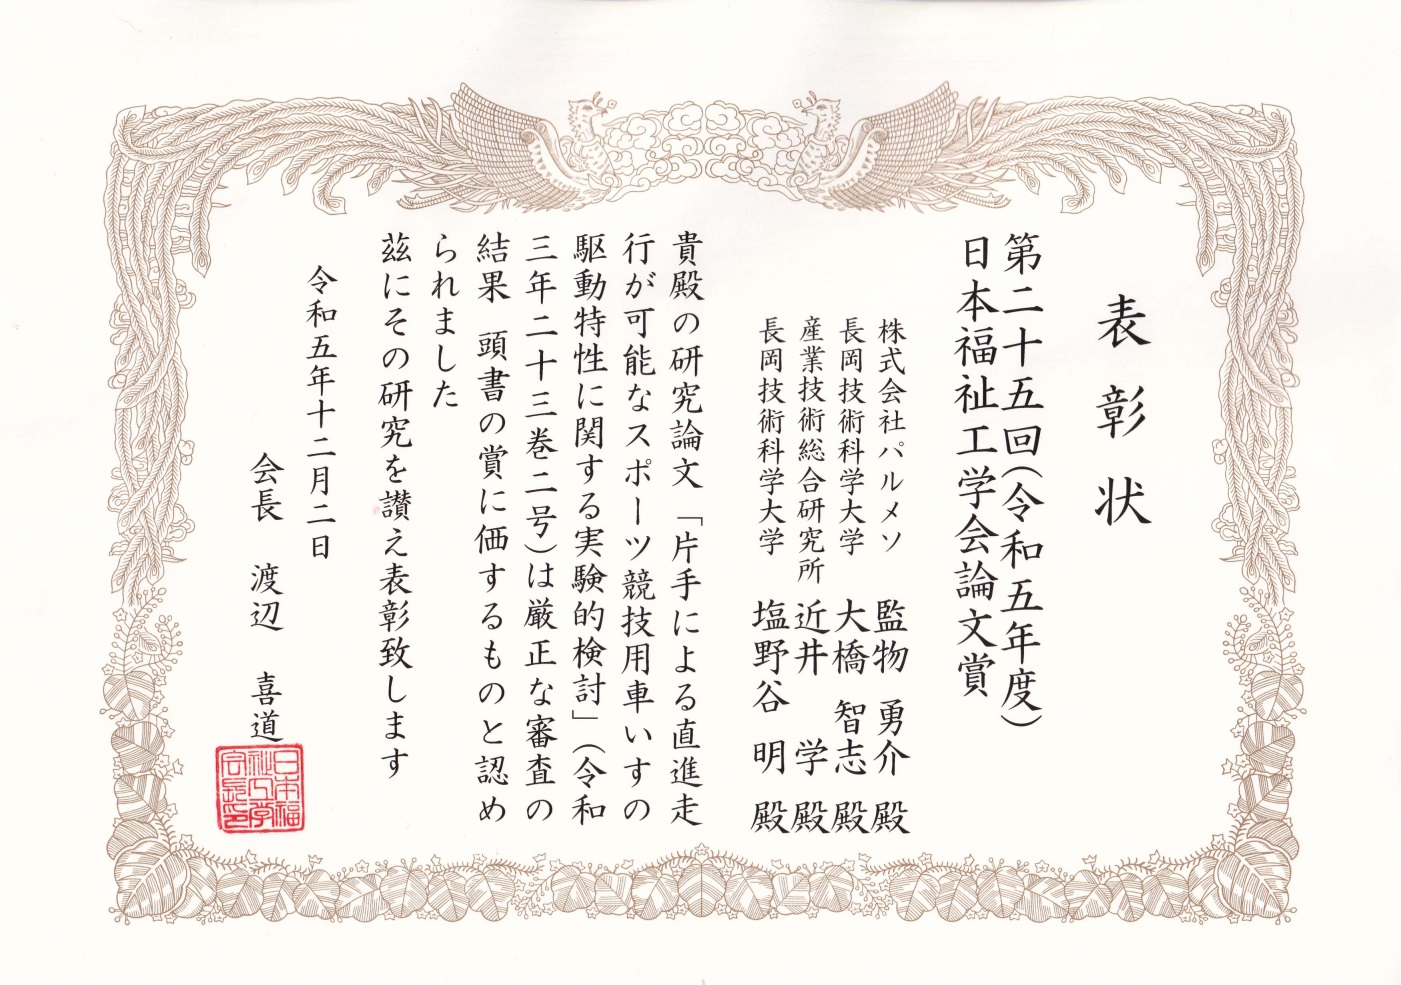 表彰状
第二十五回(令和五年度)
日本福祉工学会論文賞
株式会社パルメソ 監物 勇介 殿
長岡技術科学大学 大橋 智志 殿
産業技術総合研究所 近井 学 殿
長岡技術科学大学 塩野谷 明 殿
貴殿の研究論文「片手による直進走
行が可能なスポーツ競技用車いすの
駆動特性に関する実験的検討」(令和
三年二十三巻二号)は厳正な審査の
結果 頭書の賞に価するものと認め
られました
茲にその研究を讃え表彰致します
令和五年十二月二日
会長 渡辺 喜道
日本福
祉工学
会長印